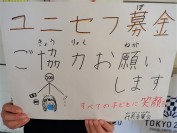 ユニセフ募金
ぼ
ご協力お願い
きょう りょく ねが
します
すべての子どもに笑顔を
TOKYO 2